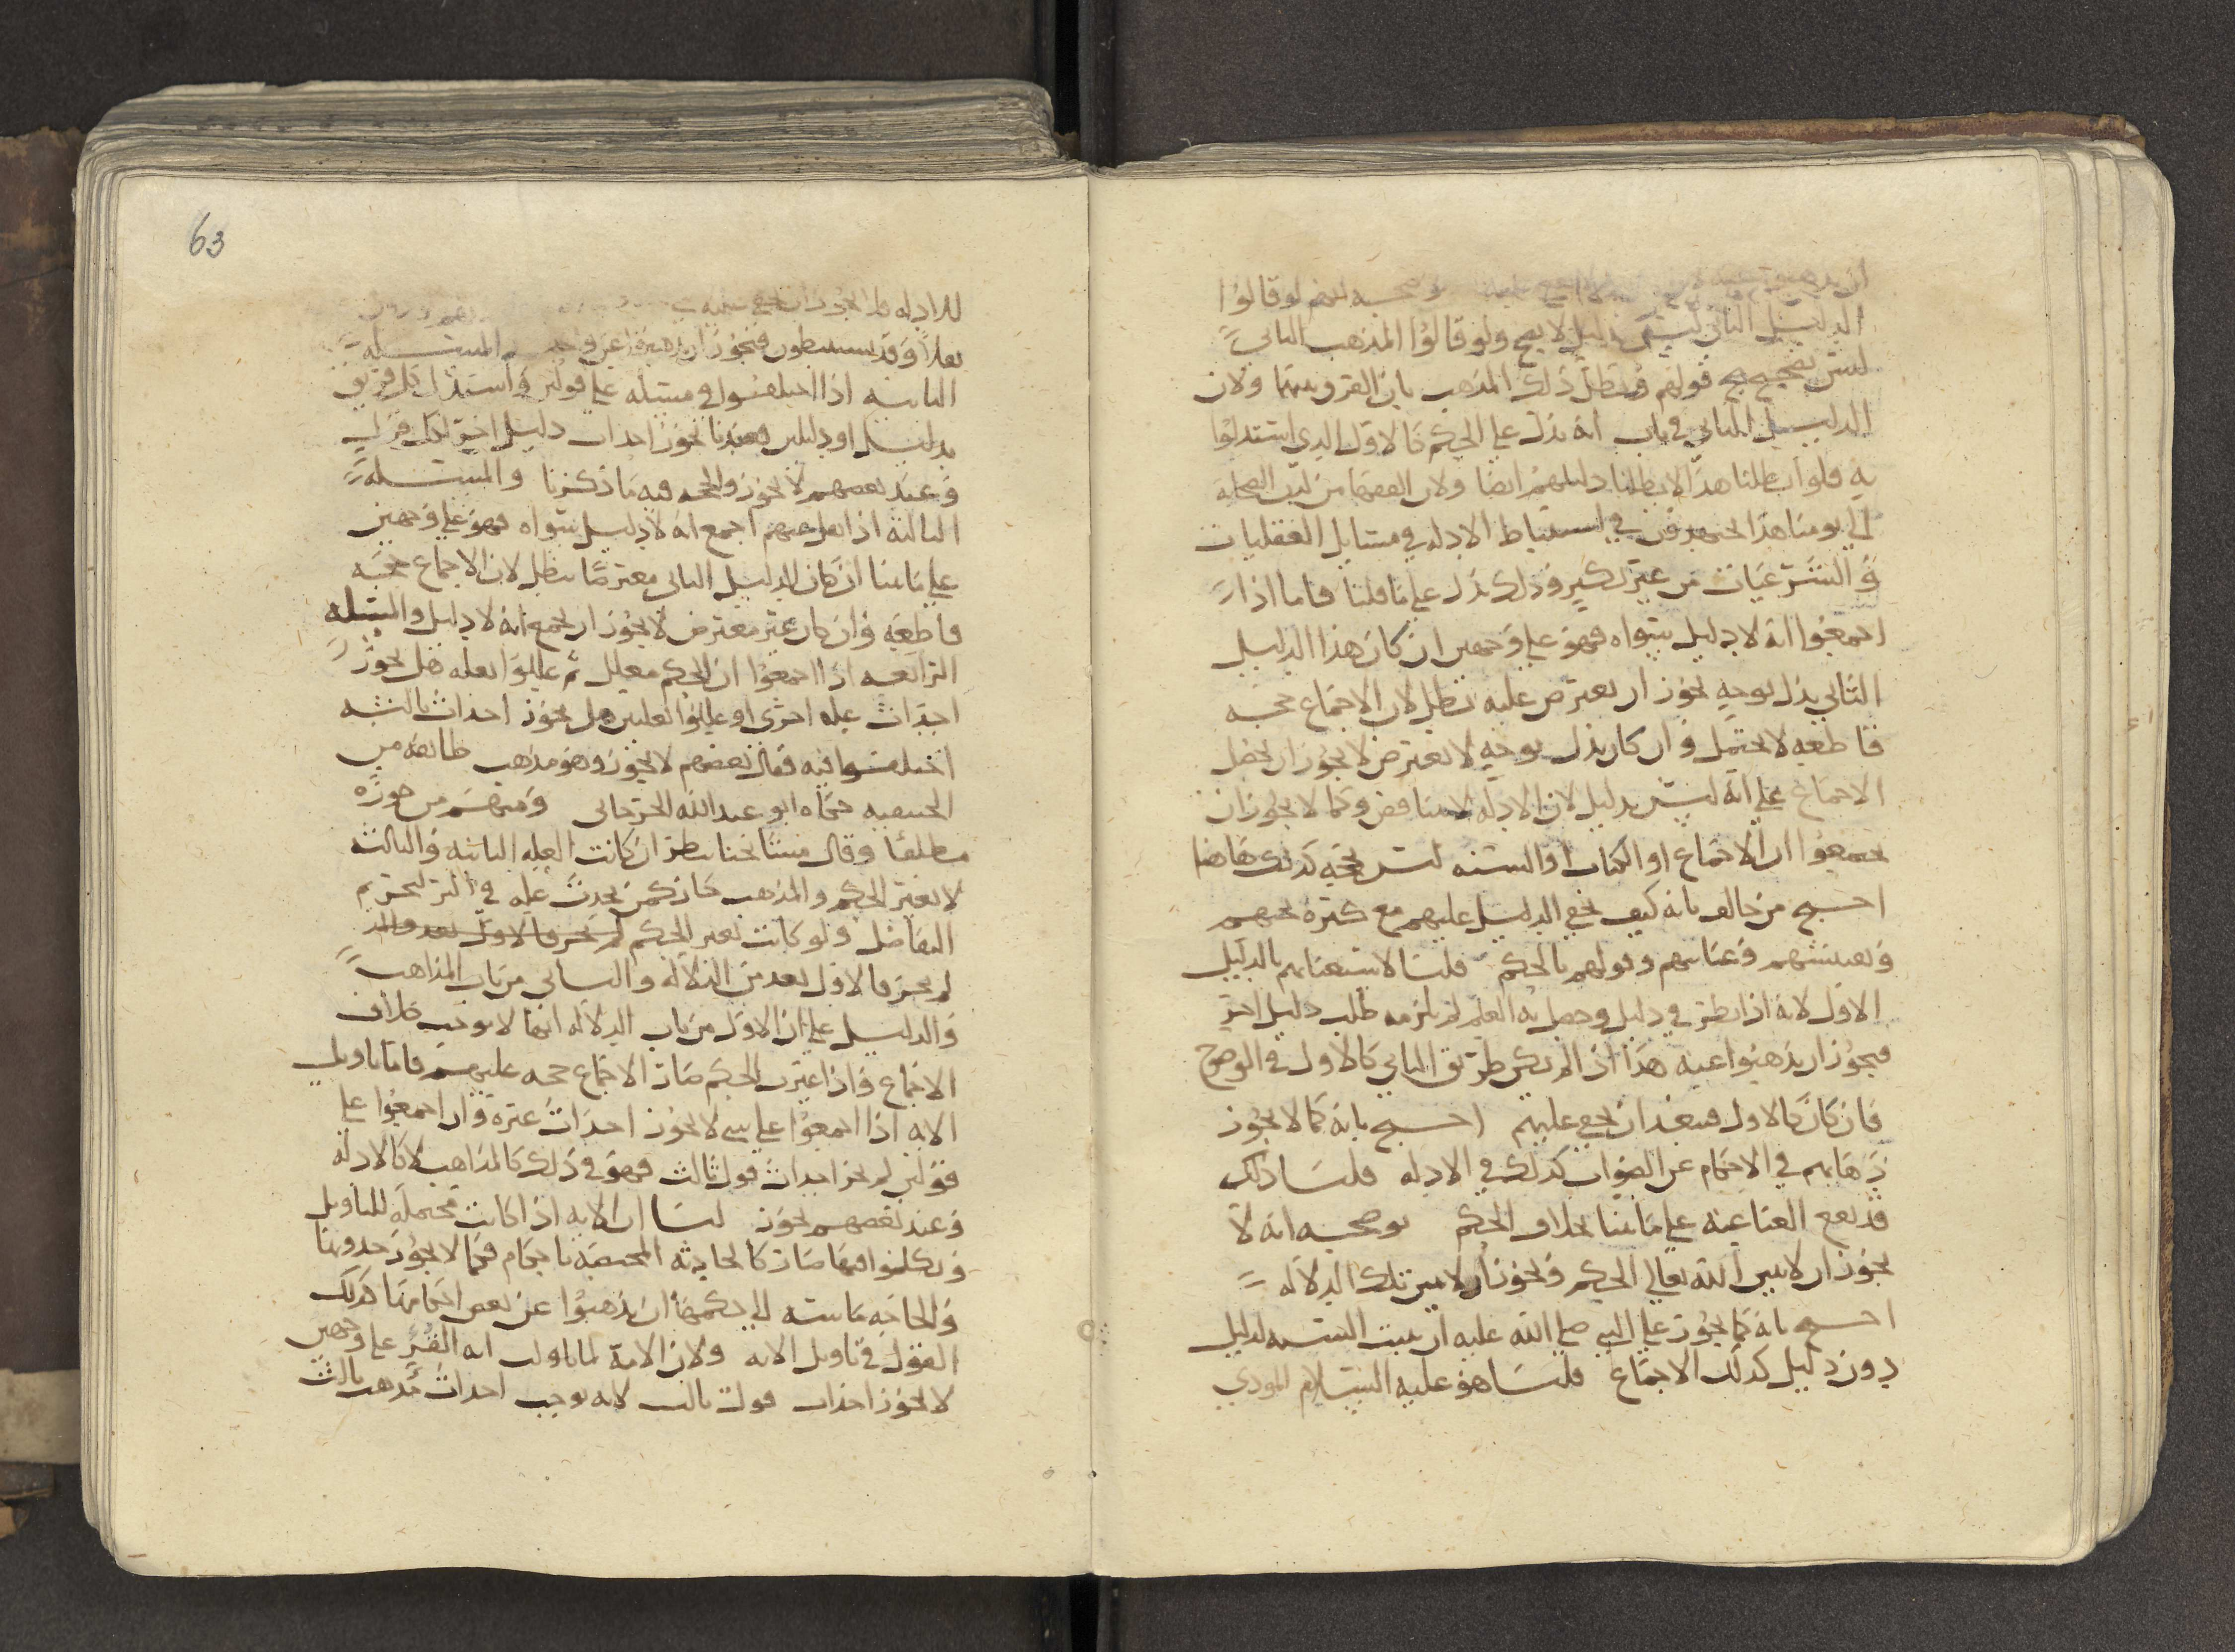 لو قالوا
الدليل الثاني ليس بدليل لا يصح ولو قالوا المذهب الثاني
ليس بصحيح صح قولهم وبطل ذلك المذهب بان الفرق بينهما ولان
الدليل الثاني في باب انه يدل على الحكم كالاول الذي استدلوا
به فلو ابطلنا هذا لابطلنا دليلهم ايضا ولان الفقها من لدن الصحابة
الى يومنا هذا يجتهدون في استنباط الادلة في مسايل العقليات
والشرعيات من غير نكير وذلك يدل على ما قلنا فاما اذا
اجمعوا انه لا دليل سواه فهو على وجهين ان كان هذا الدليل
الثاني يدل بوجه يجوز ان يعترض عليه بطل لان الاجماع حجة
قاطعة لا يحتمل وان كان يدل بوجه لا يعترض لا يجوز ان يحصل
الاجماع على انه ليس بدليل لان الادلة لا تتناقض وكما لا يجوز ان
يجمعوا ان الاجماع او الكتاب او السنة ليس بحجة كذلك هاهنا
احتج من خالف بانه كيف يخفى الدليل عليهم مع كثرة بحثهم
وتفتيشهم وعنايتهم وقولهم بالحكم قلنا لاستغنايهم بالدليل
الاول لانه اذا نظر في دليل وحصل به العلم لم يلزمه طلب دليل اخر
فيجوز ان يذهبوا عنه هذا اذا لم يكن طريق الثاني كالاول في الوضوح
فان كان كالاول فيبعد ان يخفى عليهم احتج بانه كما لا يجوز
ذهابهم في الاحكام عن الصواب كذلك في الادلة قلنا ذلك
قد يقع الغنا عنه على ما بينا بخلاف الحكم يوضحه انه لا
يجوز ان لا يبين الله تعالى الحكم ويجوز ان لا يبين تلك الدلالة
احتج بانه كما يجوز على النبي صلى الله عليه ان يثبت السنة لدليل
دون دليل كذلك الاجماع قلنا هو عليه السلام المودي
63
للادلة فلا يجوز ان يخفى عليه
نقلا وقد يستنبطون فيجوز ان يذهبوا عن واحد المسئلة
الثانية اذا اختلفوا في مسئلة على قولين واستدل كل فريق
بدليل او دليلين فعندنا يجوز احداث دليل اخر لكل فريق
وعند بعضهم لا يجوز والحجة فيه ما ذكرنا والمسئلة
الثالثة اذا نقل عنهم اجمع انه لا دليل سواه فهو على وجهين
على ما بينا ان كان الدليل الثاني معترضا بطل لان الاجماع حجة
قاطعة وان كان غير معترض لا يجوز ان يجمع انه لا دليل والمسئلة
الرابعة اذا اجمعوا ان الحكم معلل ثم عللوا بعلة هل يجوز
احداث علة اخرى او عللوا بعلتين هل يجوز احداث ثالثة
اختلفوا فيه فقال بعضهم لا يجوز وهو مذهب طائفة من
الحنفية حكاه ابو عبد الله الجرجاني ومنهم من جوزه
مطلقا وقال مشايخنا ينظر ان كانت العلة الثانية والثالثة
لا يغير الحكم والمذهب جاز كمن يحدث علة في البر لتحريم
التفاضل ولو كانت تغير الحكم لم يجز فالاول يعد من الد
لم يجز فالاول يعد من الدلالة والثاني من باب المذاهب
والدليل على ان الاول من باب الدلالة انها لا توجب خلاف
الاجماع فاذا غيرت الحكم صار الاجماع حجة عليهم فاما تاويل
الاية اذا اجمعوا على شي لا يجوز احداث غيره وان اجمعوا على
قولين لم يجز احداث قول ثالث فهو في ذلك كالمذاهب لا كالادلة
وعند بعضهم يجوز لنا ان الاية اذا كانت محتملة للتاويل
وتكلموا فيها صار كالحادثة المختصة باحكام فكما لا يجوز حدوثها
والحاجة ماسة الى حكمها ان يذهبوا عن بعض احكامها كذلك
القول في تاويل الاية ولان الامة لما تاولت اية القرء على وجهين
لا يجوز احداث قول ثالث لانه يوجب احداث مذهب ثالث